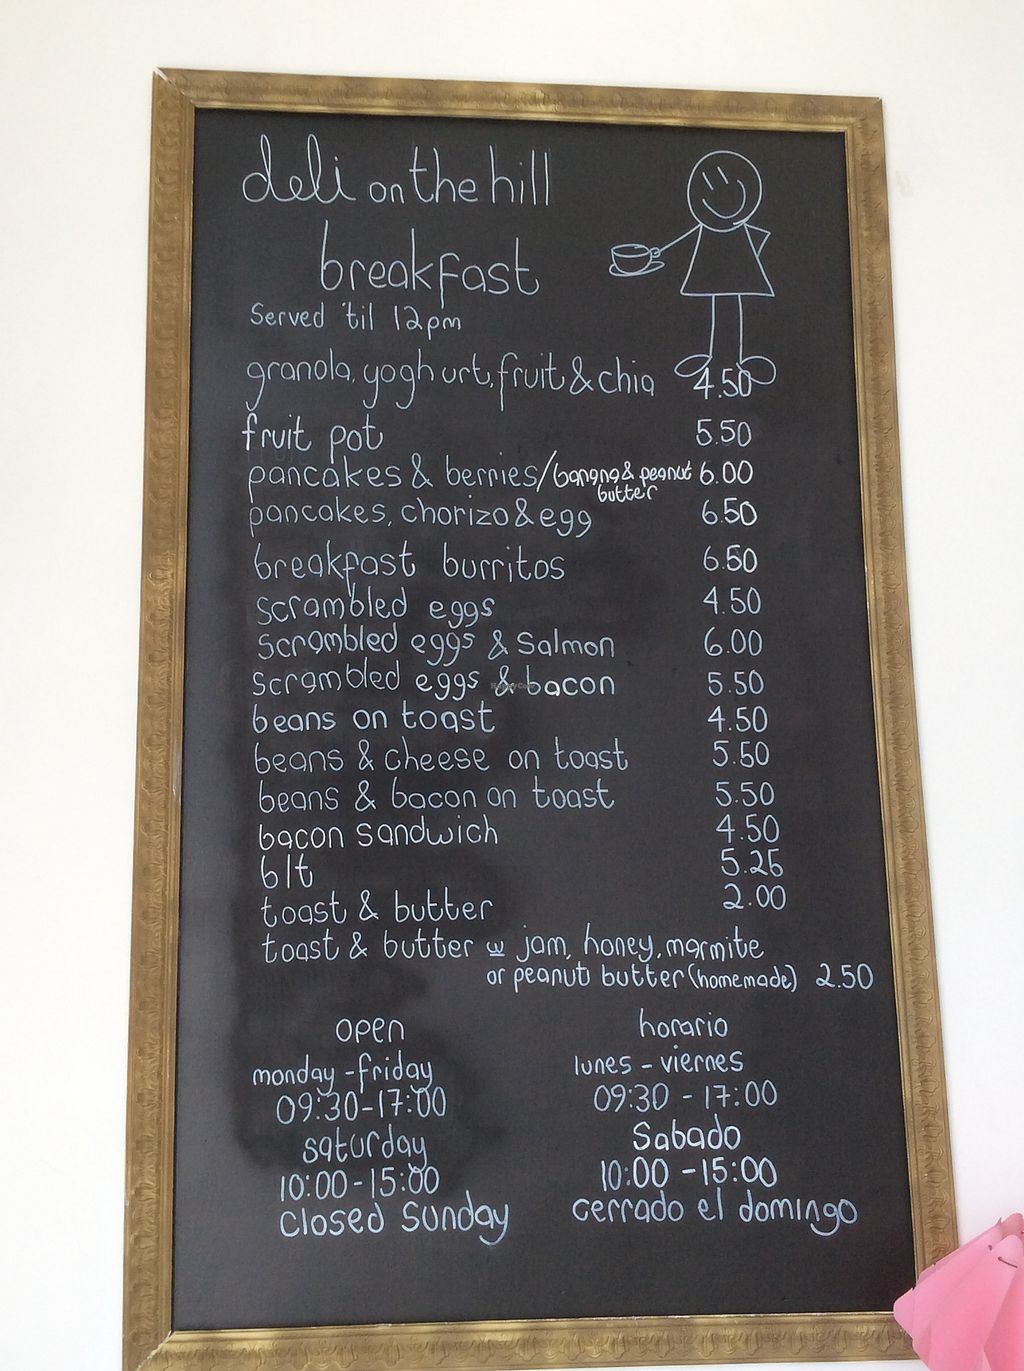 deli on the hill
breakfast
Served 'til 12pm
granola, yoghurt, fruit & chia 4.50
fruit pot 5.50
pancakes & berries/banana & peanut butter 6.00
pancakes, chorizo & egg 6.50
breakfast burritos 6.50
scrambled eggs 4.50
scrambled eggs & salmon 6.00
scrambled eggs & bacon 5.50
beans on toast 4.50
beans & cheese on toast 5.50
beans & bacon on toast 5.50
bacon sandwich 4.50
blt 5.25
toast & butter 2.00
toast & butter w jam, honey, marmite
or peanut butter (homemade) 2.50
open
monday - friday
09:30-17:00
saturday
10:00-15:00
closed sunday
horario
lunes - viernes
09:30 - 17:00
Sabado
10:00 - 15:00
cerrado el domingo